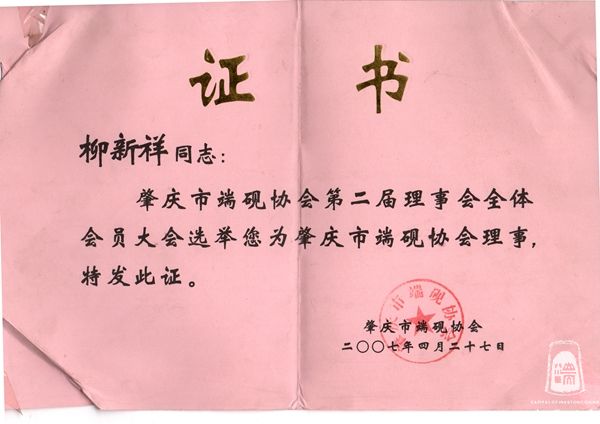 证书
柳新祥同志：
肇庆市端砚协会第二届理事会全体
会员大会选举您为肇庆市端砚协会理事，
特发此证。
肇庆市端砚协会
二〇〇七年四月二十七日